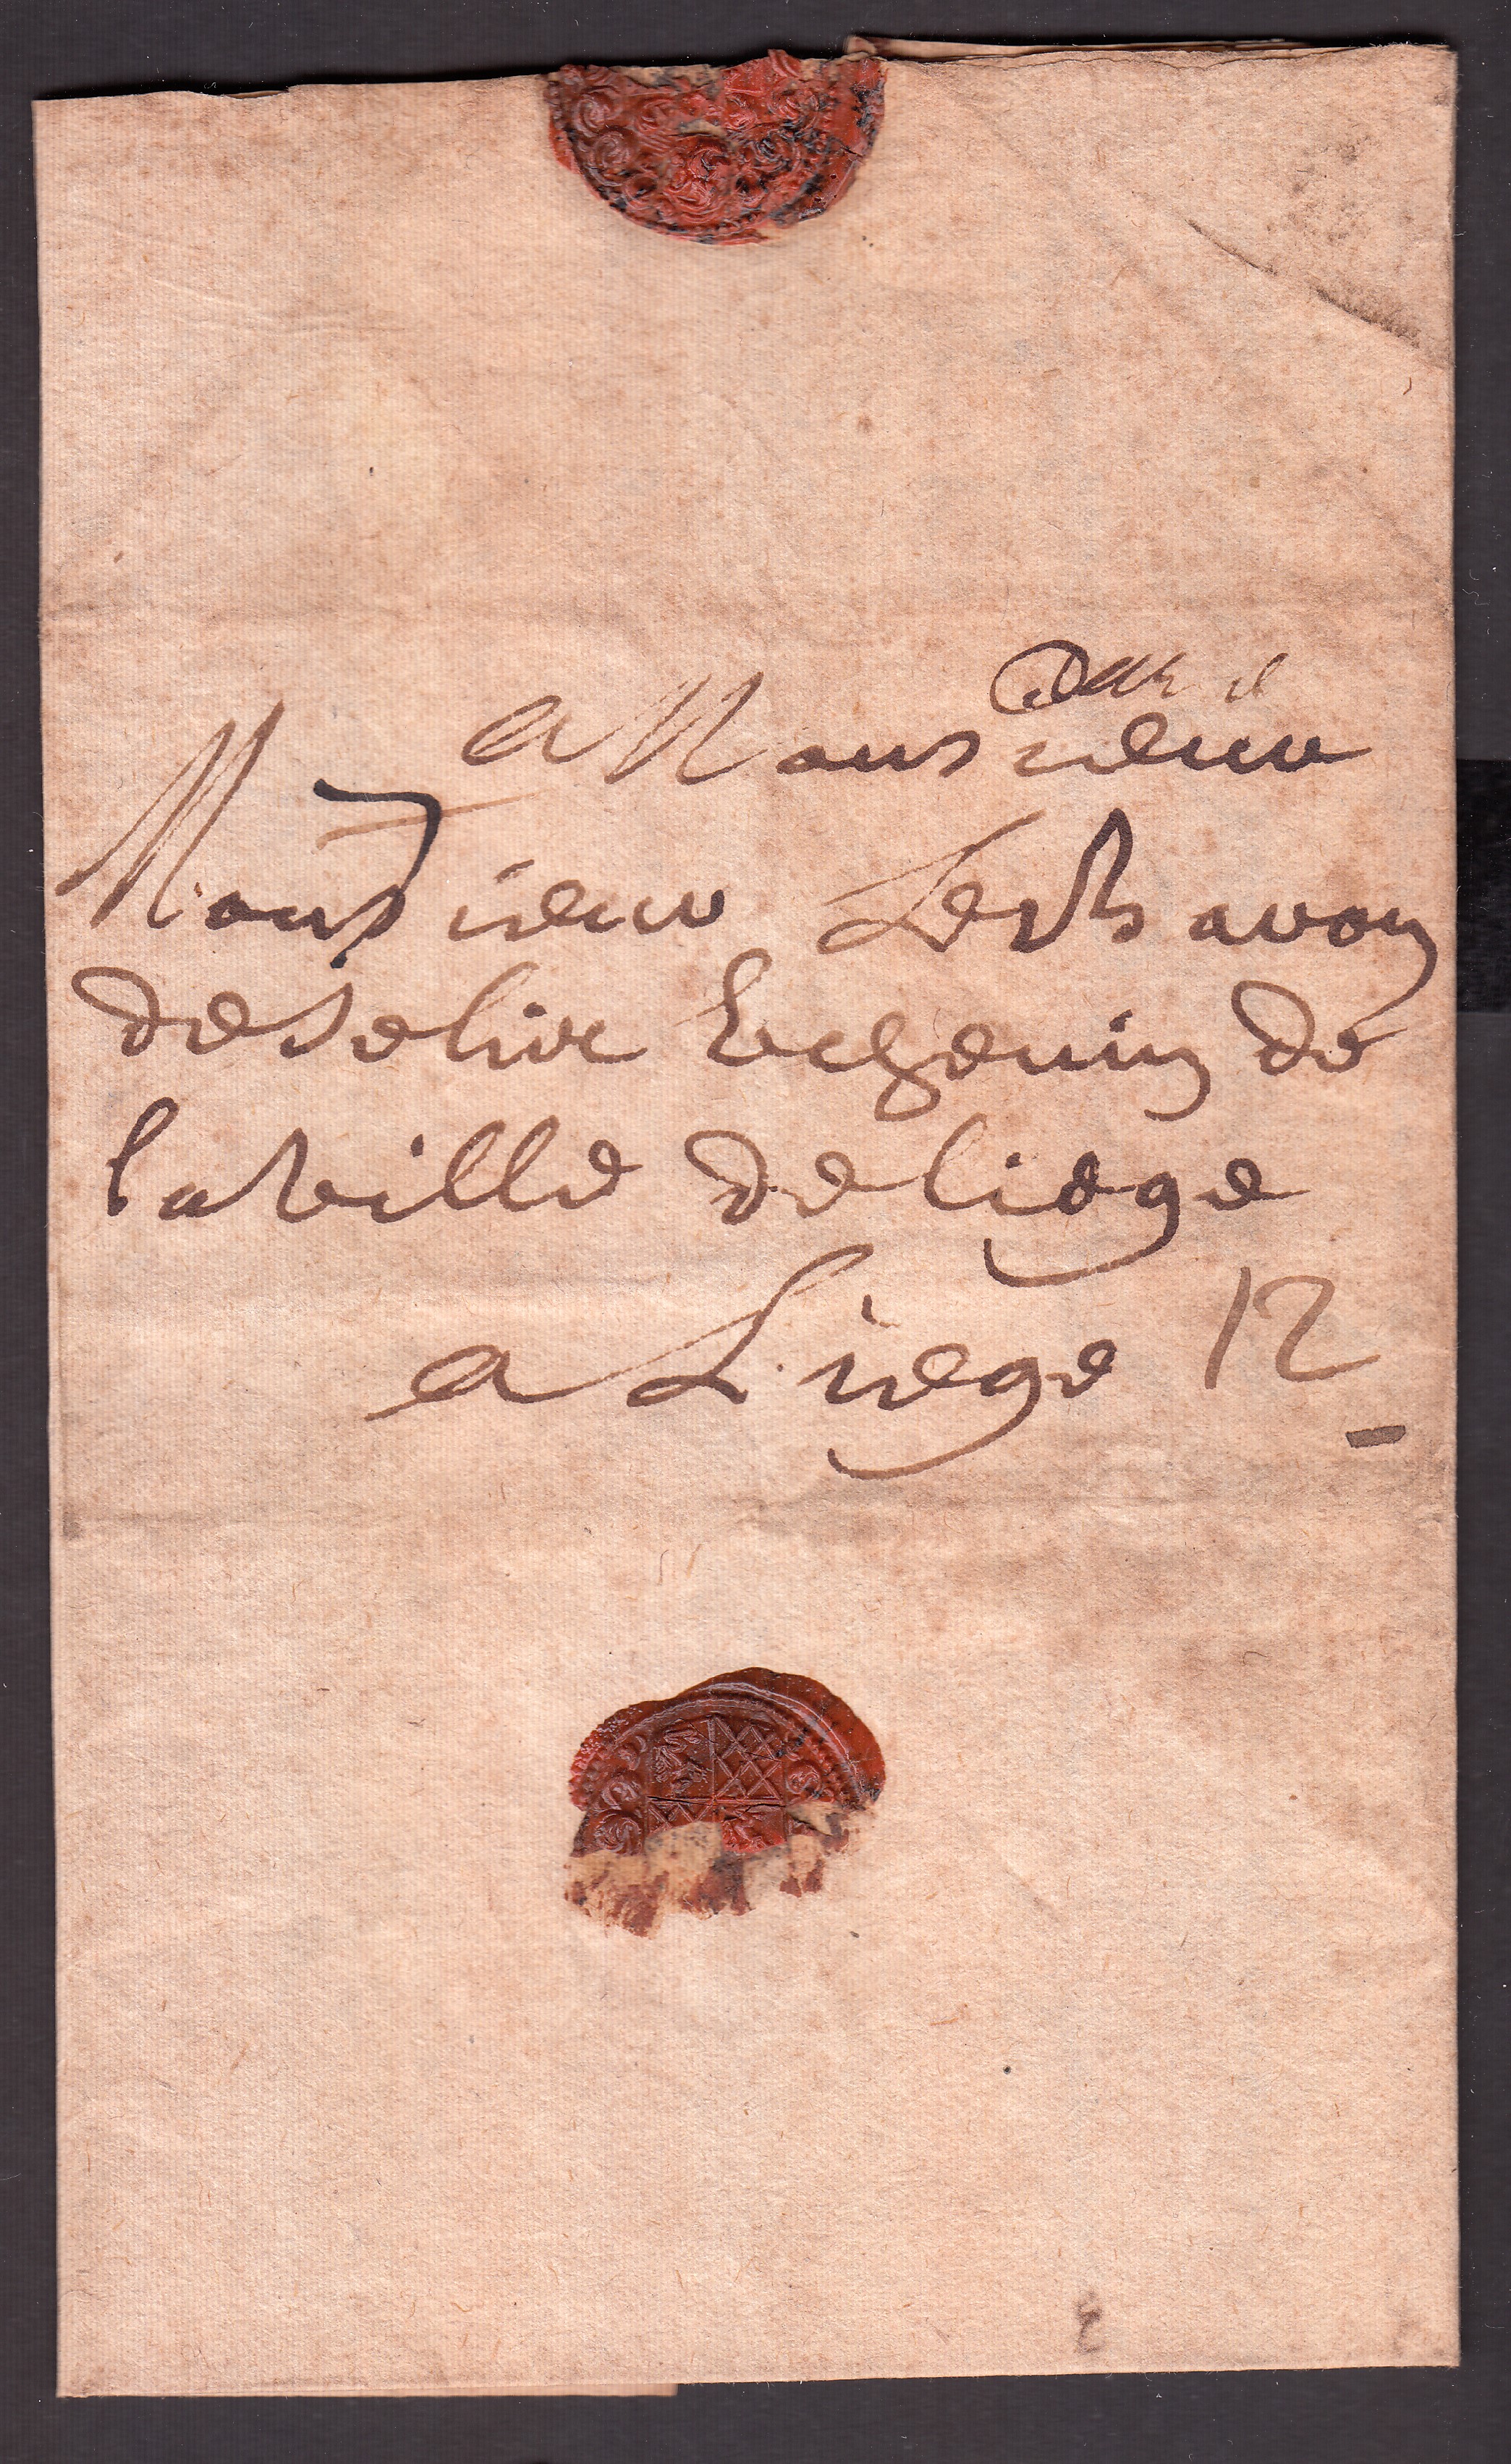 a Monsieur
Monsieur Le Baron
de Selis Echevin de
la ville de liege
a Liege 12